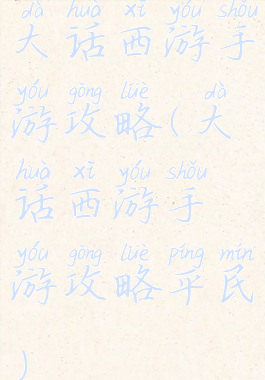 dà huà xī yóu shǒu
大话西游手
yóu gōng lüè dà
游攻略(大
huà xī yóu shǒu
话西游手
yóu gōng lüè píng mín
游攻略平民
)